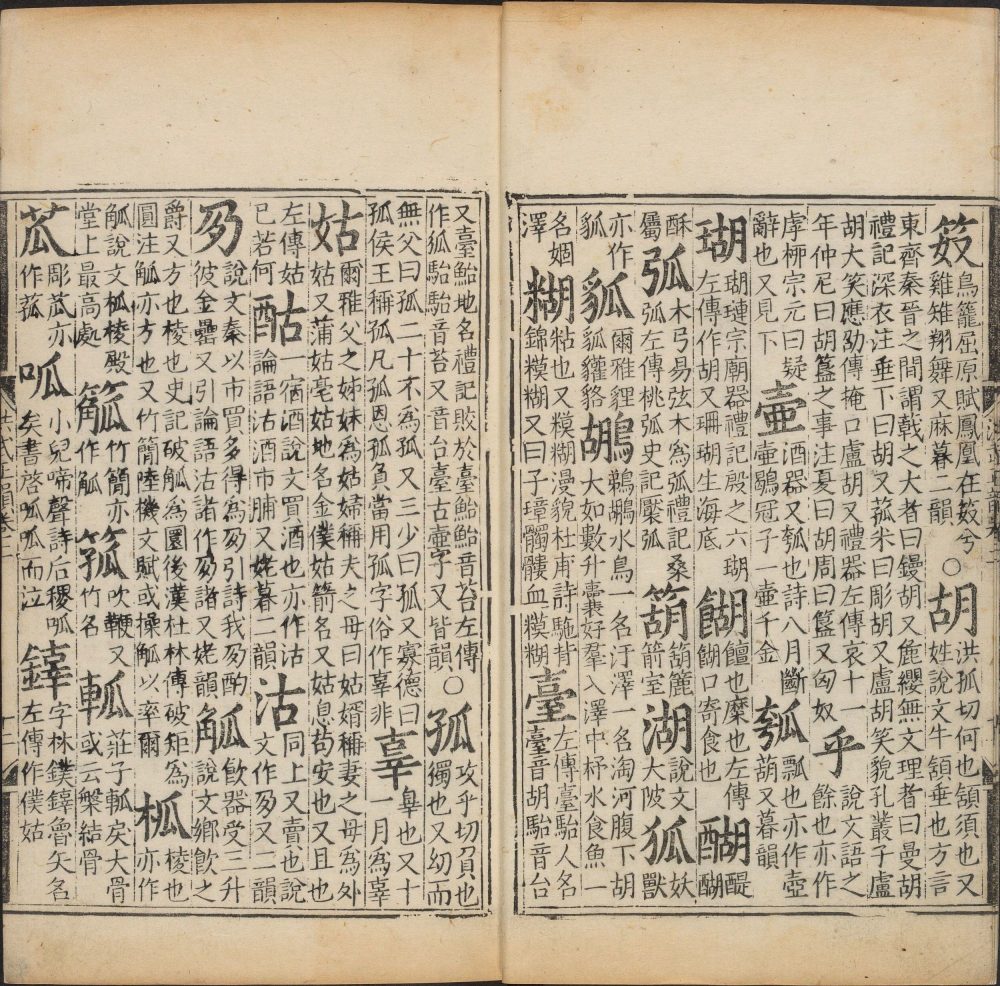 笯鳥籠屈原賦鳳凰在笯兮雞雉翔舞又麻暮二韻○胡洪孤切何也頷須也又姓說文牛頷垂也方言
東齊秦晉之間謂戟之大者曰鏝胡又麄纓無文理者曰曼胡禮記深衣注垂下曰胡又菰米曰彫胡又盧胡笑貌孔叢子盧
胡大笑應劭傳掩口盧胡又禮器左傳哀十一年仲尼曰胡簋之事注夏曰胡周曰簋又匈奴乎說文語之餘也亦作
虖柳宗元曰疑辭也又見下壷酒器又瓠也詩八月斷壷鶡冠子一壷千金瓠瓢也亦作壺葫又暮韻
瑚瑚璉宗廟器禮記殷之六瑚左傳作胡又珊瑚生海底餬饘也糜也左傳餬口寄食也醐醍醐
酥屬弧木弓易弦木為弧禮記桑弧左傳桃弧史記檿弧箶箶簏箭室湖說文大陂狐妖獸
亦作爾雅貍貒鶘鵜鶘水鳥一名汙澤一名淘河腹下胡大如數升囊好羣入澤中杼水食魚一
名婟澤糊粘也又糢糊漫貌杜甫詩駞背錦糢糊又曰子璋髑髏血糢糊臺左傳臺駘人名臺音胡駘音台
又臺鮐地名禮記敗於臺鮐鮐音苔左傳作狐駘駘音苔又音台臺古壷字又皆韻○孤攻乎切負也獨也又幼而
無父曰孤二十不為孤又三少曰孤又寡德曰孤侯王稱孤凡孤恩孤負當用孤字俗作辜非辜辠也又十一月為辜
姑爾雅父之姊妹為姑婦稱夫之母曰姑婿稱妻之母為外姑又蒲姑亳姑地名金僕姑箭名又姑息苟安也又且也
左傳姑已若何酤一宿酒說文買酒也亦作沽論語沽酒市脯又姥暮二韻沽同上又賣也說文作夃又二韻
夃說文秦以市買多得為夃引詩我夃酌彼金罍又引論語沽諸作夃諸又姥韻觚飲器受三升說文鄉飲之
爵又方也棱也史記破觚為圜後漢杜林傳破矩為圓注觚亦方也又竹簡陸機文賦或操觚以率爾柧棱也亦作
觚說文柧棱殿堂上最高處𥯉竹簡亦作觚箛吹鞭又竹名軱莊子軱戾大骨或云槃結骨
苽彫苽亦作菰呱小兒啼聲詩后稷呱矣書啓呱呱而泣鏬字林鏷鏬魯矢名左傳作僕姑